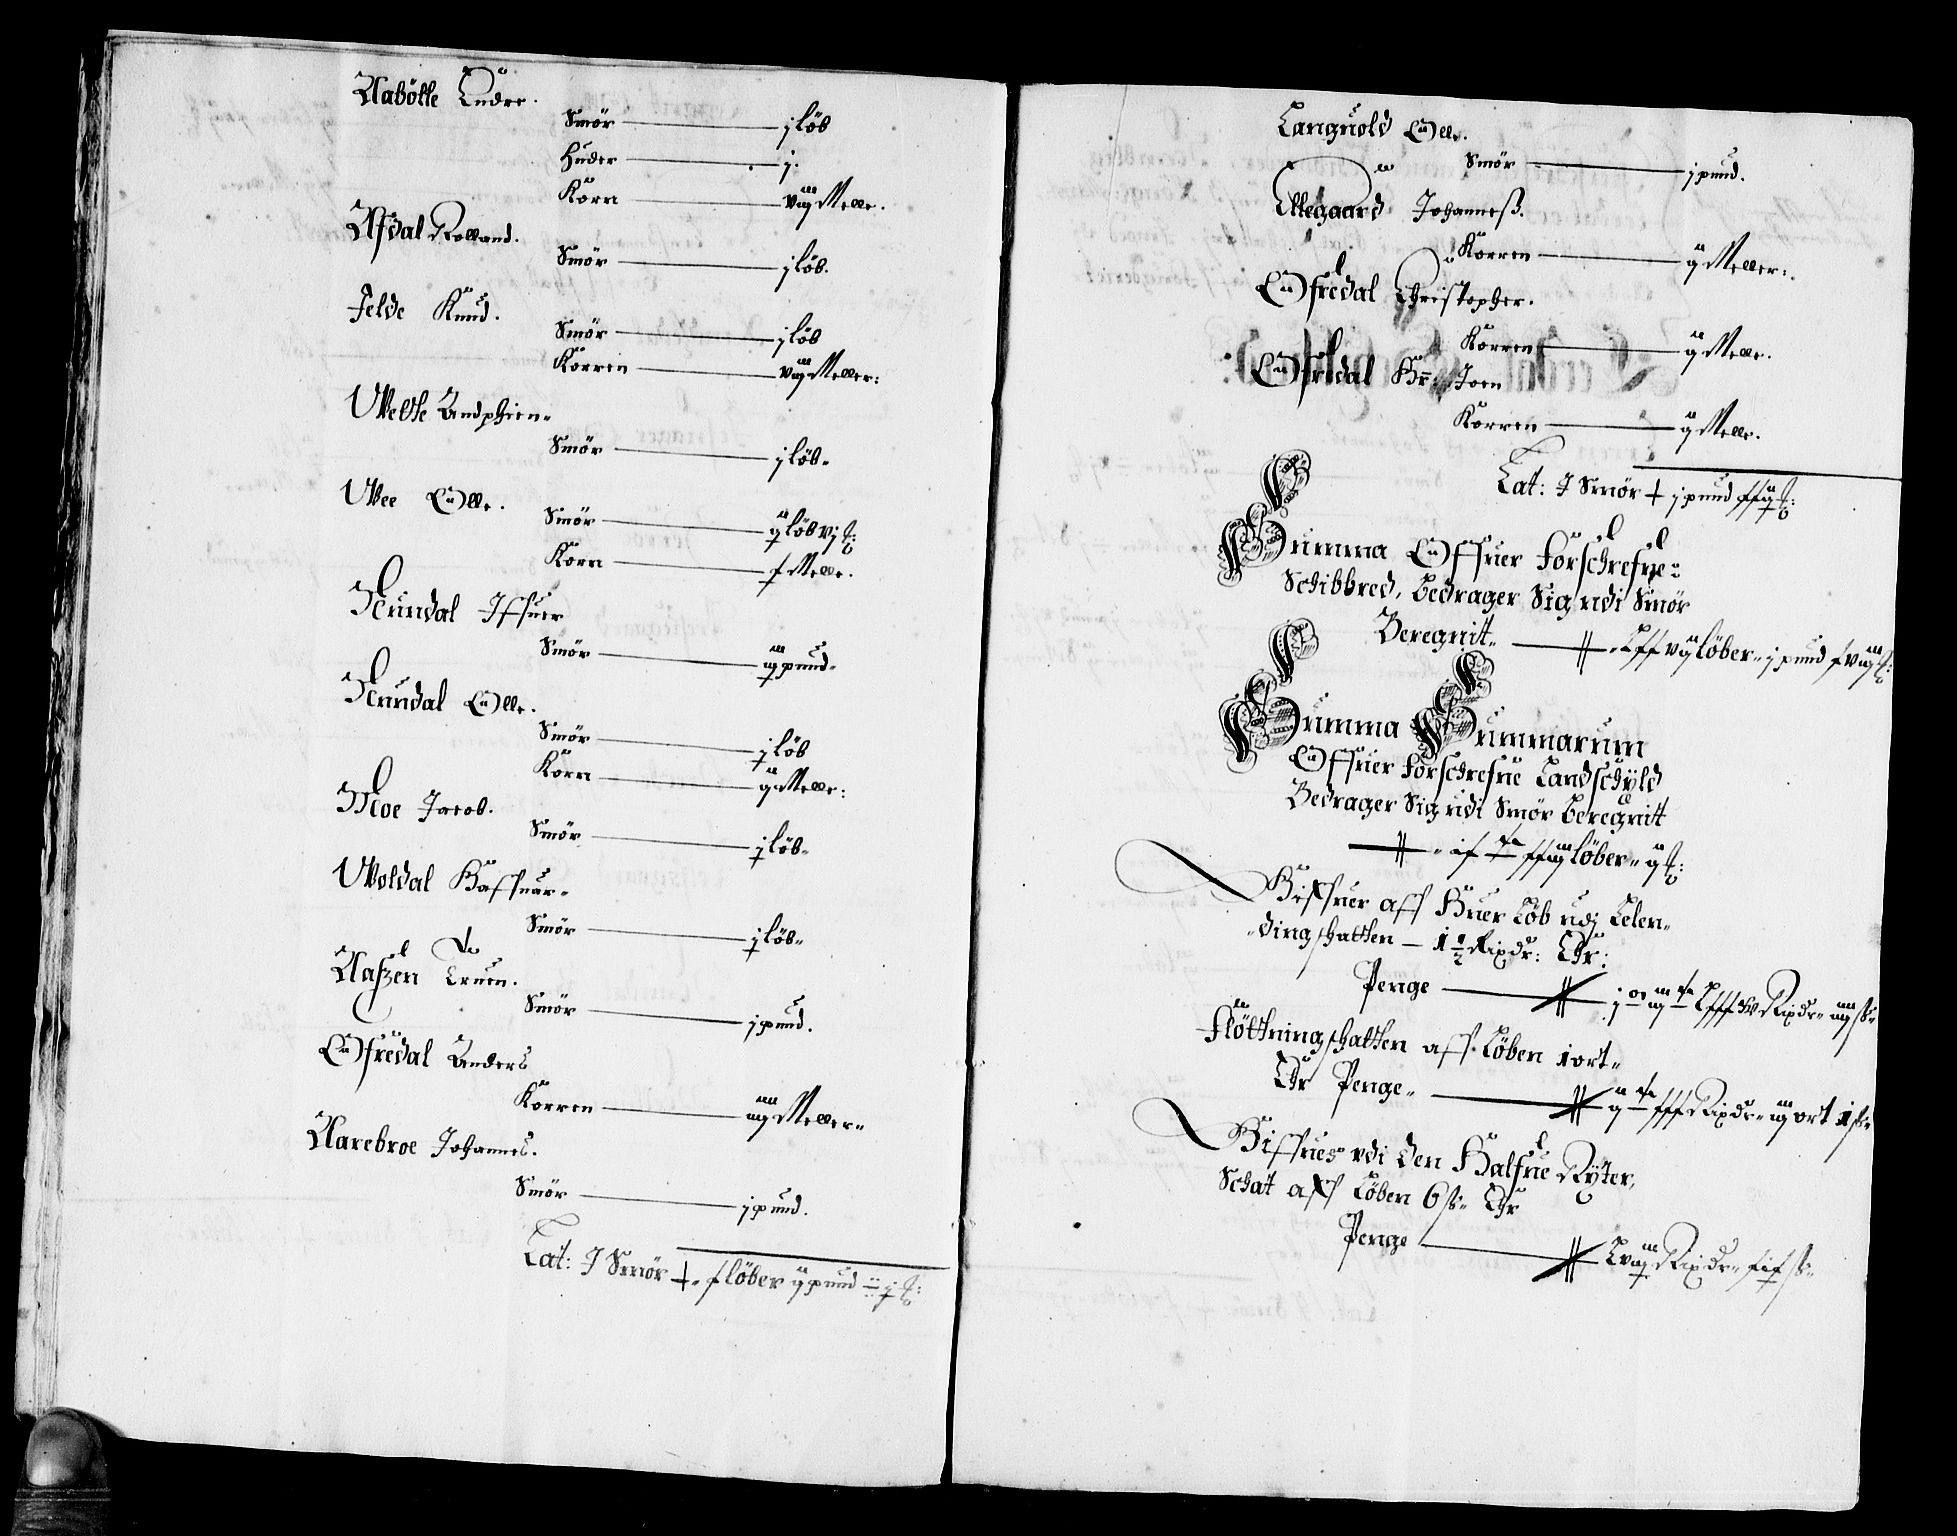 Nabölle Endre.
Smör — j löb
Huder — j.
Korn — viij Melle.
Afdal Rolland.
Smör — j löb.
Jelde Knud.
Smör — j löb
Korren — viij Meller:
Welle Andphien
Smör — j löb
Wee Olle.
Smör — ij löb vj
Korn — x Melle.
Nundal Iffuer
Smör — iij pund
Nundal Olle.
Smör — j löb
Korn — ij Melle:
Moe Jacob.
Smör — j löb
Woldal Haffuar
Smör — j löb
Naszen Truen.
Smör — j pund.
Ofredal Anders
Korren — iiij Meller
Narebroe Johannes.
Smör — j pund.
Lat: J Smör x löber ij pund j
Languold Olle.
Smör — j pund.
Ellegaard Johanneß.
Korren — ij Meller:
Ofredal Christopher.
Korren — ij Melle.
Ofredal Hr: Joen
Korren — ij Melle.
Lat: J Smör j pund
Summa Offuer Forschrefne
Schibbred, Bedrager Sig udi Smör
Beregnit — Lxxvij löber j pund
Summa Summarum
Offuer Forschrefne Landschyld
Bedrager Sig udi Smör Beregnit
löber
Giffuer aff Huer Löb udj Lelendingschatten — 1½ Rixdr: Er:
Penge — Rixdr
Flöttningschatten aff Löben 1 ort
Er Penge — Rixdr iij ort 1 ß
Giffues udi den Halfue Ryter
Schat aff Löben 6 ß Er
Penge — Lviij Rixdr xix ß